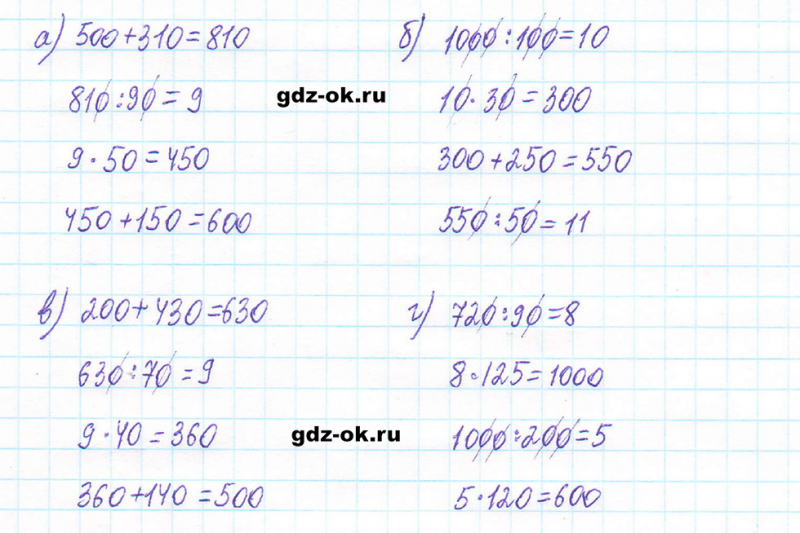 а) 500+310=810
810:90=9
gdz-ok.ru
9·50=450
450+150=600
б) 1000:100=10
10·30=300
300+250=550
550:50=11
в) 200+430=630
630:70=9
9·40=360
gdz-ok.ru
360+140=500
г) 720:90=8
8·125=1000
1000:200=5
5·120=600